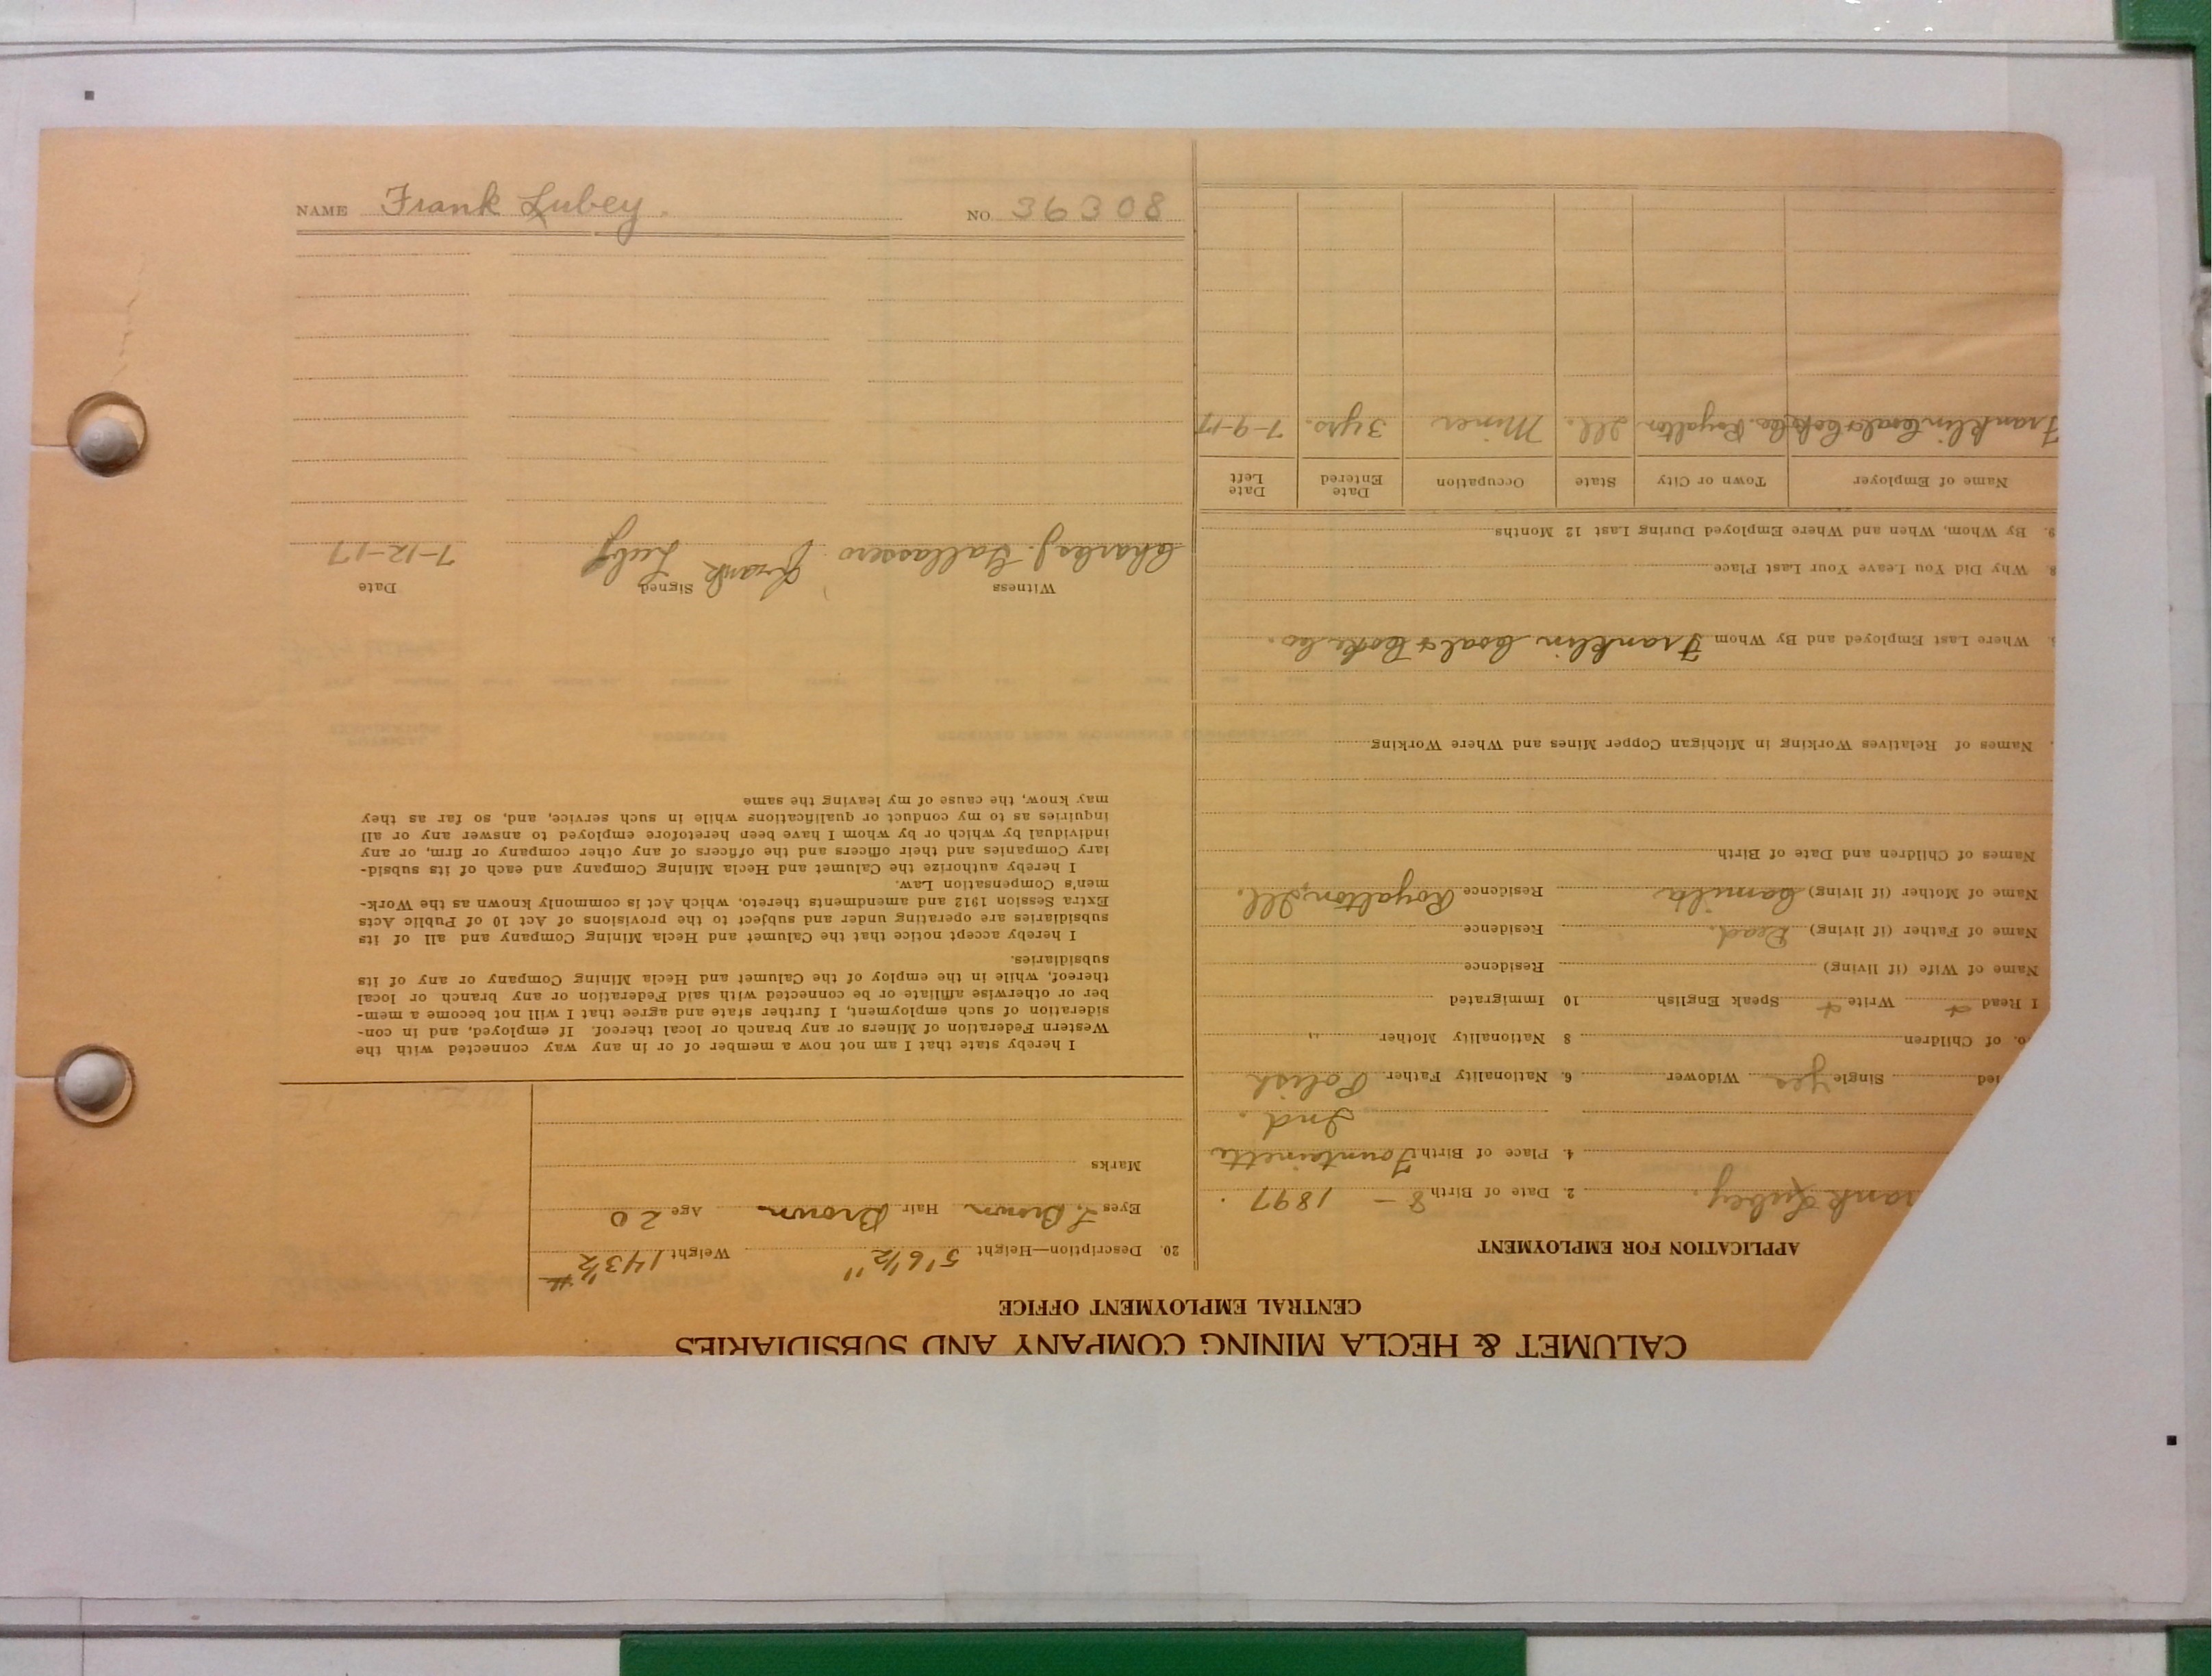 NAME Frank Lubey. NO. 36308
CALUMET & HECLA MINING COMPANY AND SUBSIDIARIES
CENTRAL EMPLOYMENT OFFICE
APPLICATION FOR EMPLOYMENT
rank Lubey. 2. Date of Birth 8 - 1897.
4. Place of Birth Fountainette
Ind.
ied Single yes Widower 6. Nationality Father Polish
o. of Children 8 Nationality Mother "
I Read Write Speak English 10 Immigrated
Name of Wife (if living) Residence
Name of Father (if living) Dead. Residence
Name of Mother (if living) Camilta Residence Royalton, Ill.
Names of Children and Date of Birth
. Names of Relatives Working in Michigan Copper Mines and Where Working
. Where Last Employed and By Whom Franklin Coal & Coke Co.
8. Why Did You Leave Your Last Place
9. By Whom, When and Where Employed During Last 12 Months
Name of Employer Town or City State Occupation Date Entered Date Left
Franklin Coal & Coke Co. Royalton Ill. Miner 3 yrs. 7-9-17
20. Description—Height 5'6½" Weight 143½ #
Eyes L. Brown Hair Brown Age 20
Marks
I hereby state that I am not now a member of or in any way connected with the
Western Federation of Miners or any branch or local thereof. If employed, and in con-
sideration of such employment, I further state and agree that I will not become a mem-
ber or otherwise affiliate or be connected with said Federation or any branch or local
thereof, while in the employ of the Calumet and Hecla Mining Company or any of its
subsidiaries.
I hereby accept notice that the Calumet and Hecla Mining Company and all of its
subsidiaries are operating under and subject to the provisions of Act 10 of Public Acts
Extra Session 1912 and amendments thereto, which Act is commonly known as the Work-
men's Compensation Law.
I hereby authorize the Calumet and Hecla Mining Company and each of its subsid-
iary Companies and their officers and the officers of any other company or firm, or any
individual by which or by whom I have been heretofore employed to answer any or all
inquiries as to my conduct or qualifications while in such service, and, so far as they
may know, the cause of my leaving the same
Witness Signed Date
Charles J. Gallassero Frank Luby 7-12-17